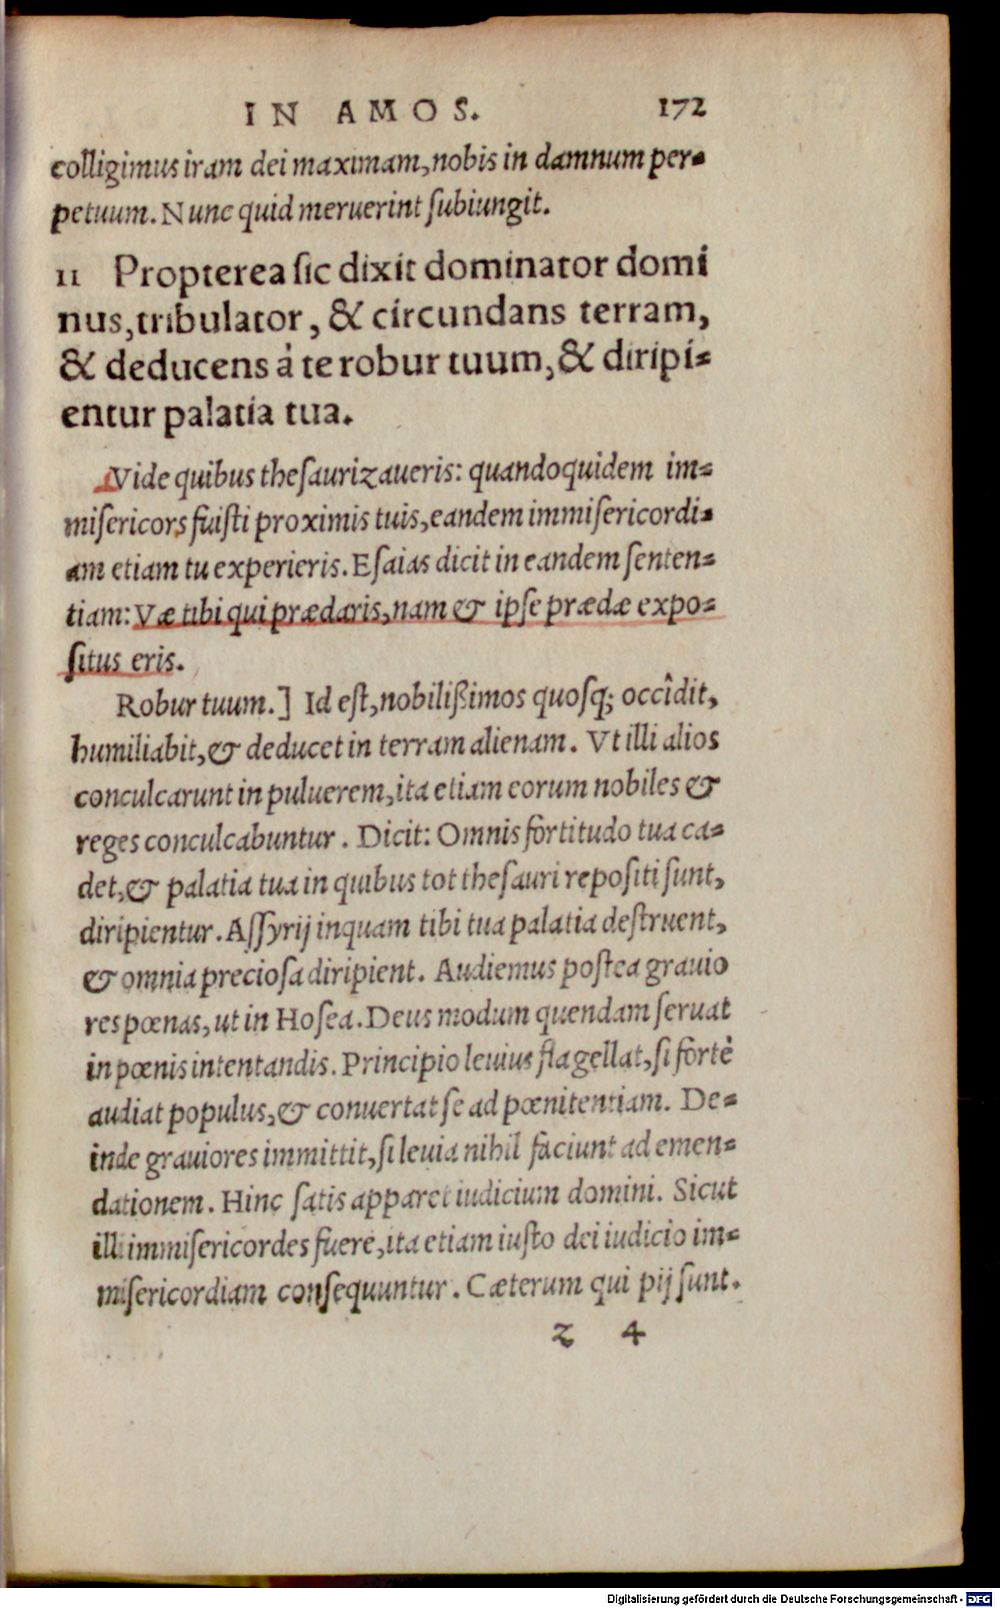 IN AMOS. 172
colligimus iram dei maximam, nobis in damnum per-
petuum. Nunc quid meruerint ſubiungit.
11 Propterea ſic dixit dominator domi
nus, tribulator, & circundans terram,
& deducens à te robur tuum, & diripi-
entur palatia tua.
Vide quibus theſaurizaueris: quandoquidem im-
miſericors fuiſti proximis tuis, eandem immiſericordi-
am etiam tu experieris. Eſaias dicit in eandem ſenten-
tiam: Væ tibi qui prædaris, nam & ipſe prædæ expo-
ſitus eris.
Robur tuum.] Id eſt, nobilißimos quoſq; occîdit,
humiliabit, & deducet in terram alienam. Vt illi alios
conculcarunt in puluerem, ita etiam eorum nobiles &
reges conculcabuntur. Dicit: Omnis fortitudo tua ca-
det, & palatia tua in quibus tot theſauri repoſiti ſunt,
diripientur. Aſſyrij inquam tibi tua palatia deſtruent,
& omnia precioſa diripient. Audiemus poſtea grauio
res pœnas, ut in Hoſea. Deus modum quendam ſeruat
in pœnis intentandis. Principio leuius flagellat, ſi fortè
audiat populus, & conuertat ſe ad pœnitentiam. De-
inde grauiores immittit, ſi leuia nihil faciunt ad emen-
dationem. Hinc ſatis apparet iudicium domini. Sicut
illi immiſericordes fuere, ita etiam iuſto dei iudicio im-
miſericordiam conſequuntur. Cæterum qui pij ſunt.
z 4
Digitalisierung gefördert durch die Deutsche Forschungsgemeinschaft - DFG